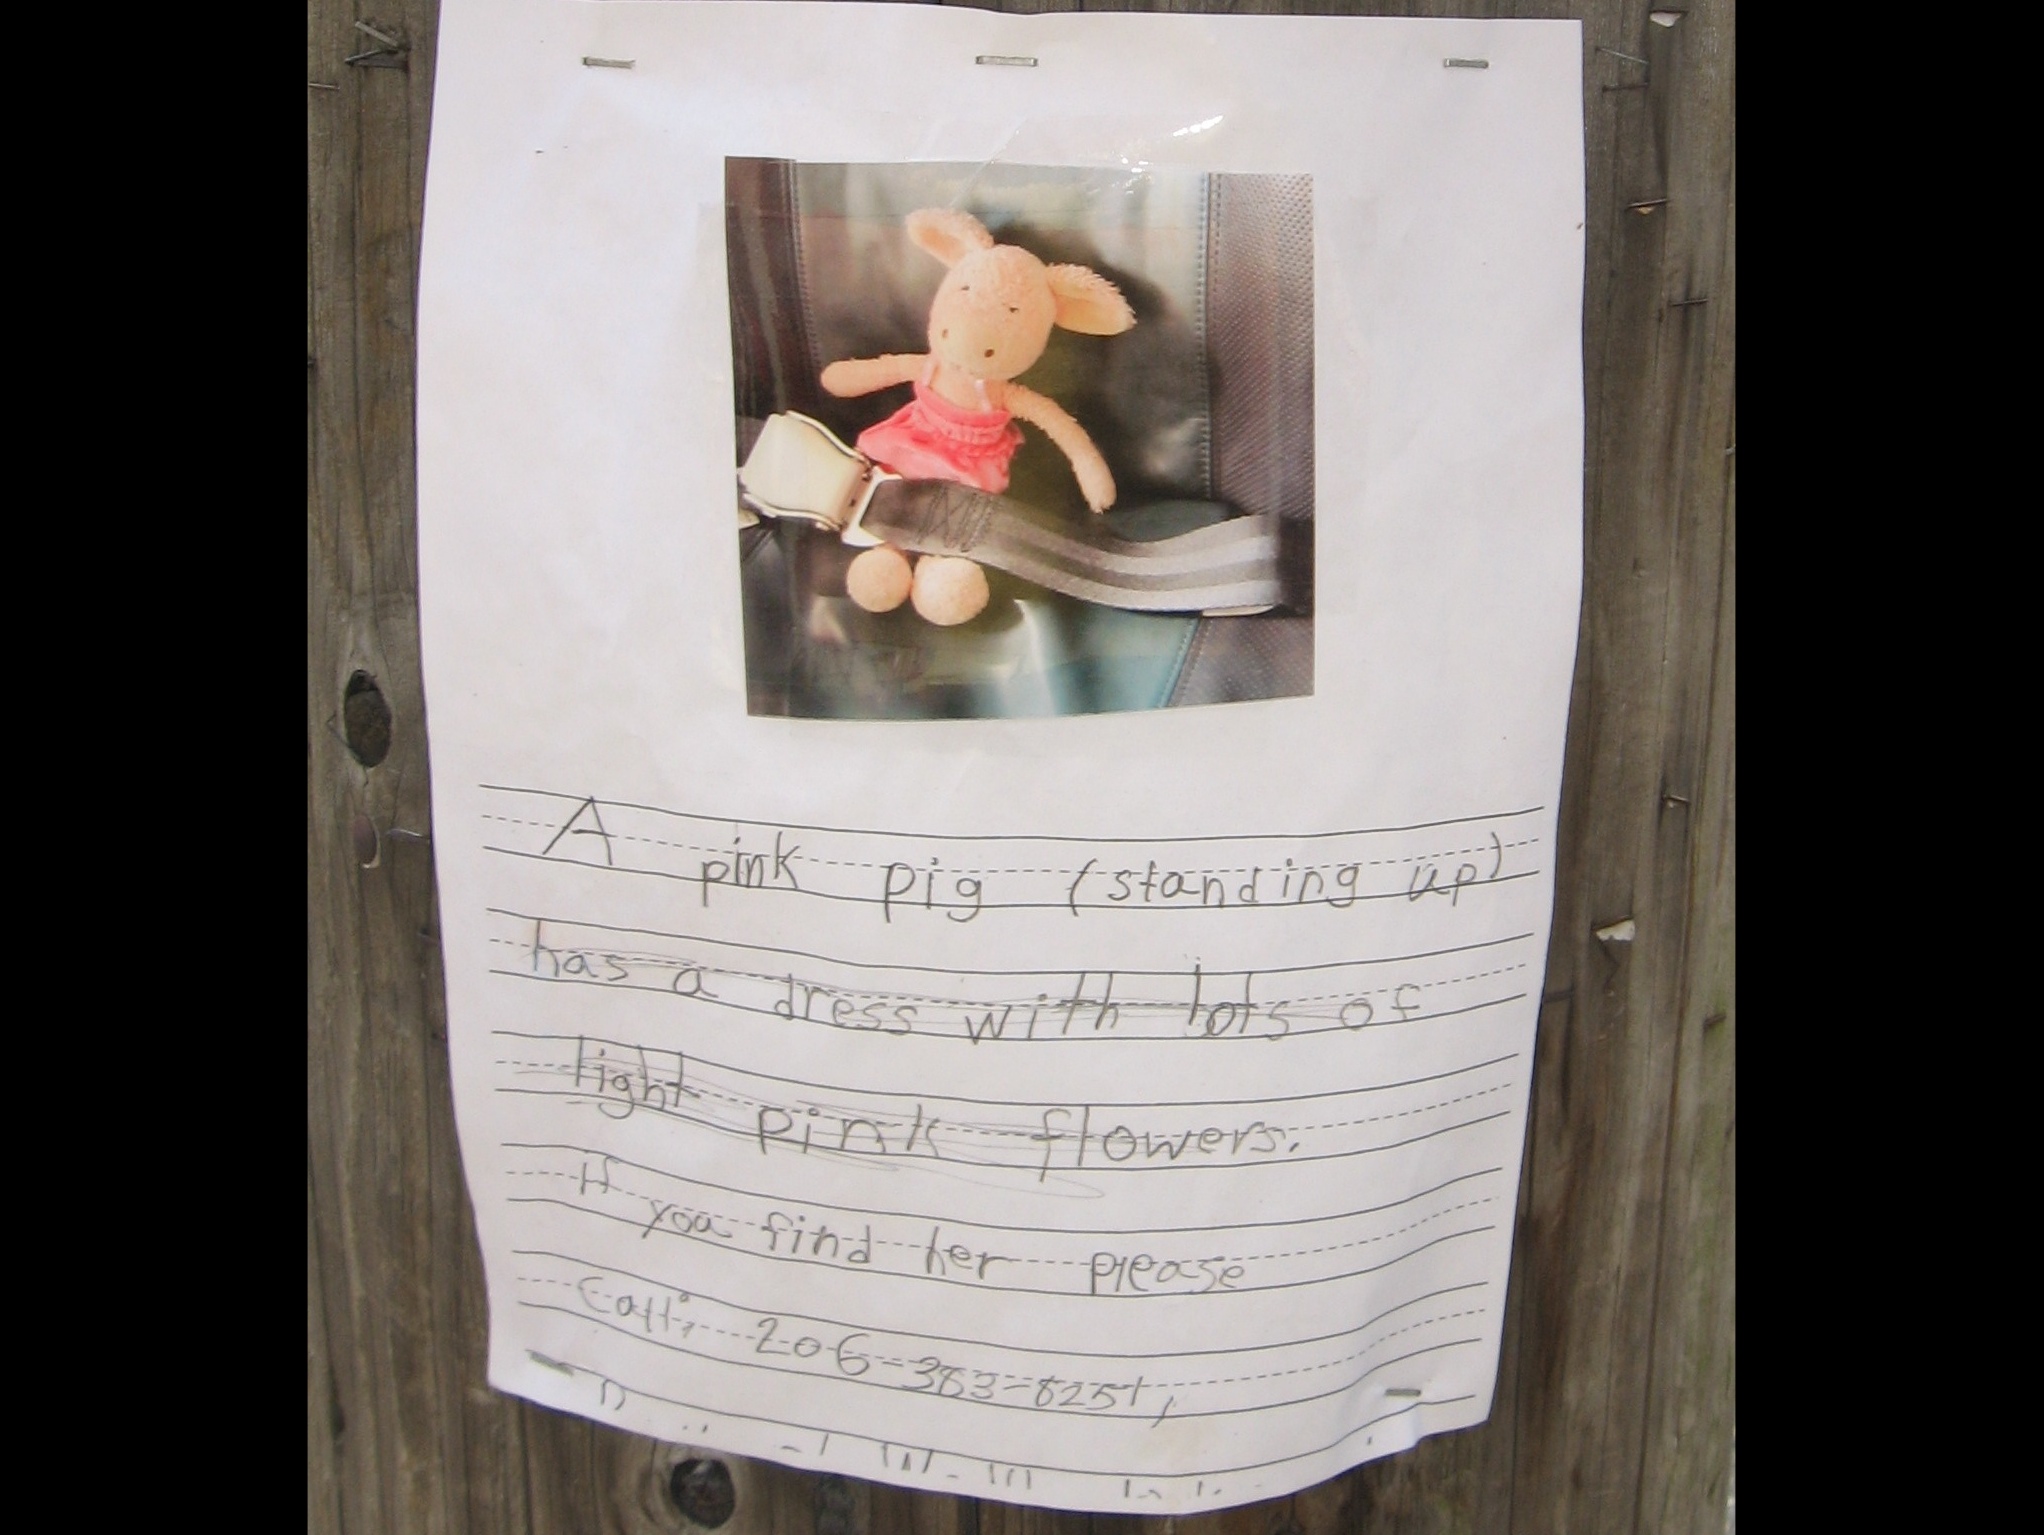 A pink pig (standing up)
has a dress with lots of
light pink flowers.
If you find her please
Call: 206-383-8251,